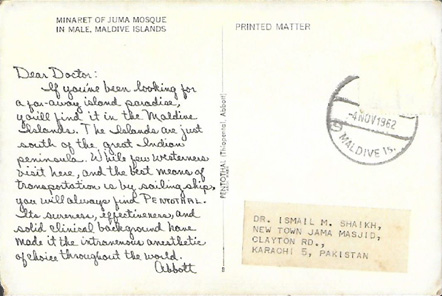 MINARET OF JUMA MOSQUE
IN MALE, MALDIVE ISLANDS
PRINTED MATTER
Dear Doctor:
If you've been looking for
a far-away island paradise,
you'll find it in the Maldive
Islands. The Islands are just
south of the great Indian
peninsula. While few westerners
visit here, and the best means of
transportation is by sailing ships,
you will always find PENTOTHAL.
Its sureness, effectiveness, and
solid clinical background have
made it the intravenous anesthetic
of choice throughout the world.
Abbott
PENTOTHAL (Thiopental, Abbott)
-4 NOV 1962
MALDIVE IS.
DR. ISMAIL M. SHAIKH,
NEW TOWN JAMA MASJID,
CLAYTON RD.,
KARACHI 5, PAKISTAN